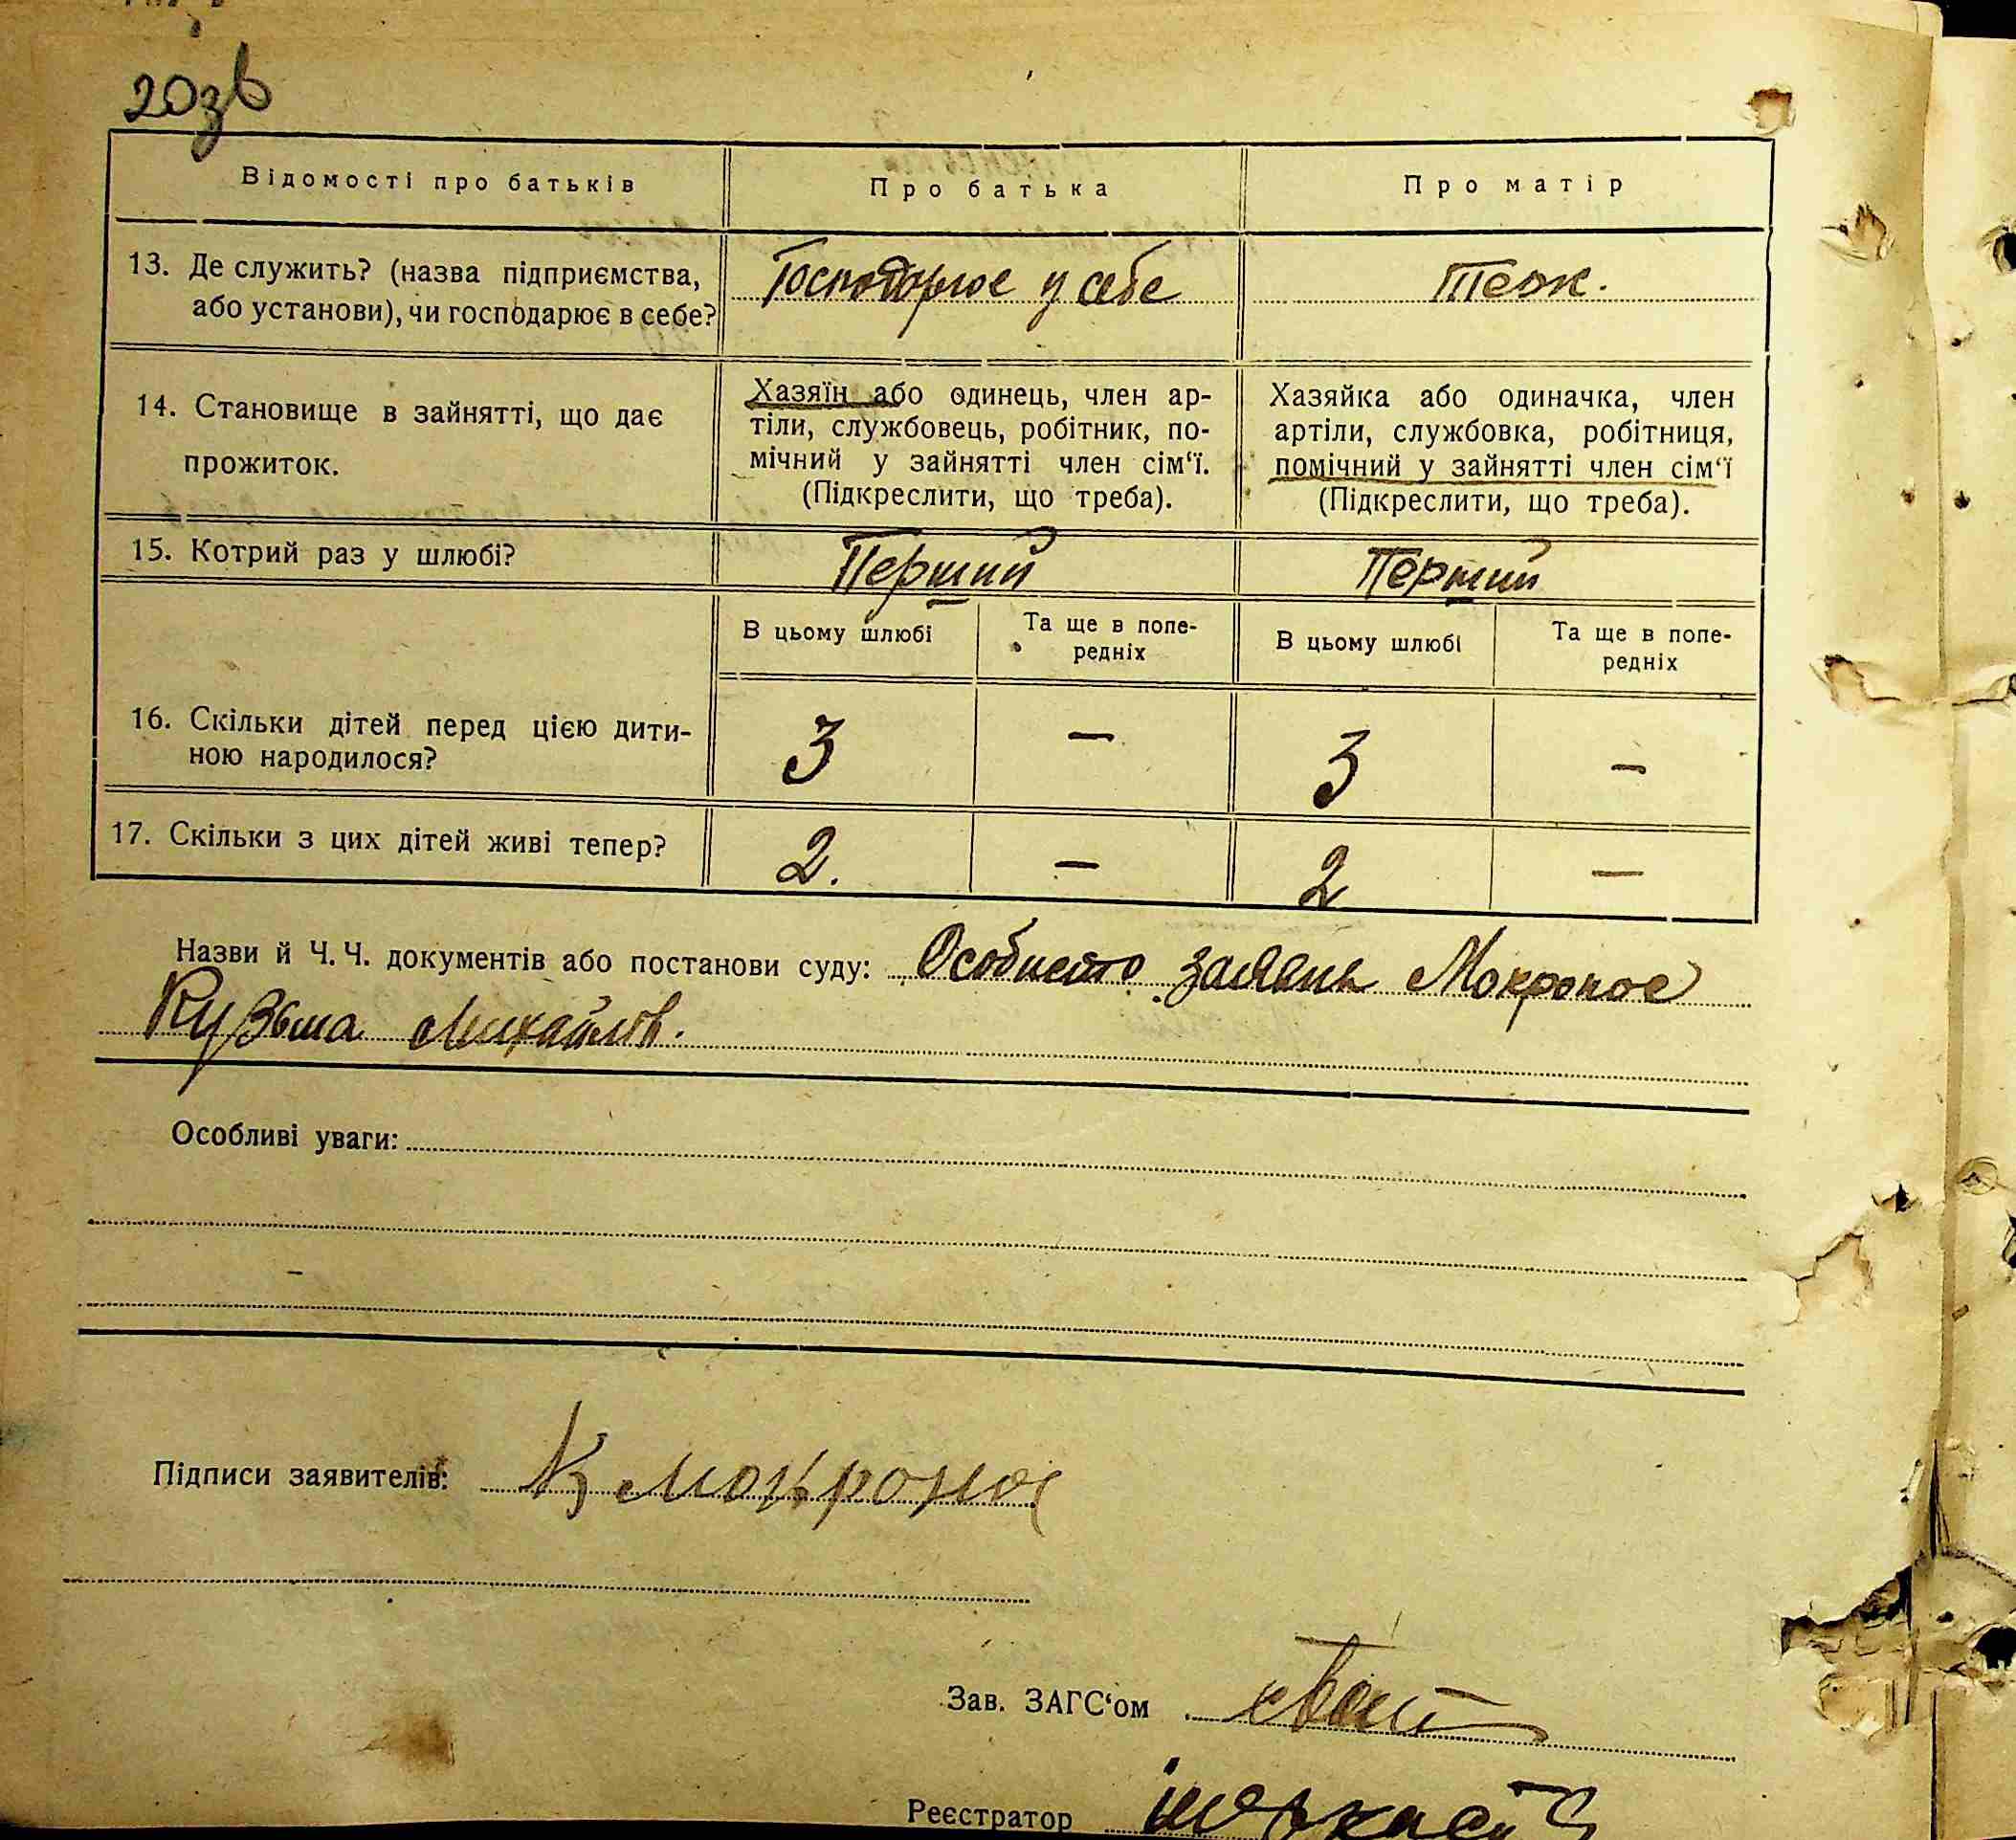 203в
Відомості про батьків
Про батька
Про матір
13. Де служить? (назва підприємства,
або установи), чи господарює в себе?
Господарює у себе
Теж.
14. Становище в зайнятті, що дає
прожиток.
Хазяїн або одинець, член ар-
тіли, службовець, робітник, по-
мічний у зайнятті член сім‘ї.
(Підкреслити, що треба).
Хазяйка або одиначка, член
артіли, службовка, робітниця,
помічний у зайнятті член сім‘ї
(Підкреслити, що треба).
15. Котрий раз у шлюбі?
Перший
Перший
В цьому шлюбі
Та ще в попе-
редніх
В цьому шлюбі
Та ще в попе-
редніх
16. Скільки дітей перед цією дити-
ною народилося?
3
—
3
—
17. Скільки з цих дітей живі тепер?
2.
—
2
—
Назви й Ч. Ч. документів або постанови суду: Особисто заявив Мокронос
Кузьма Михайлов.
Особливі уваги:
Підписи заявителів: К Мокронос
Зав. ЗАГС‘ом
Реєстратор